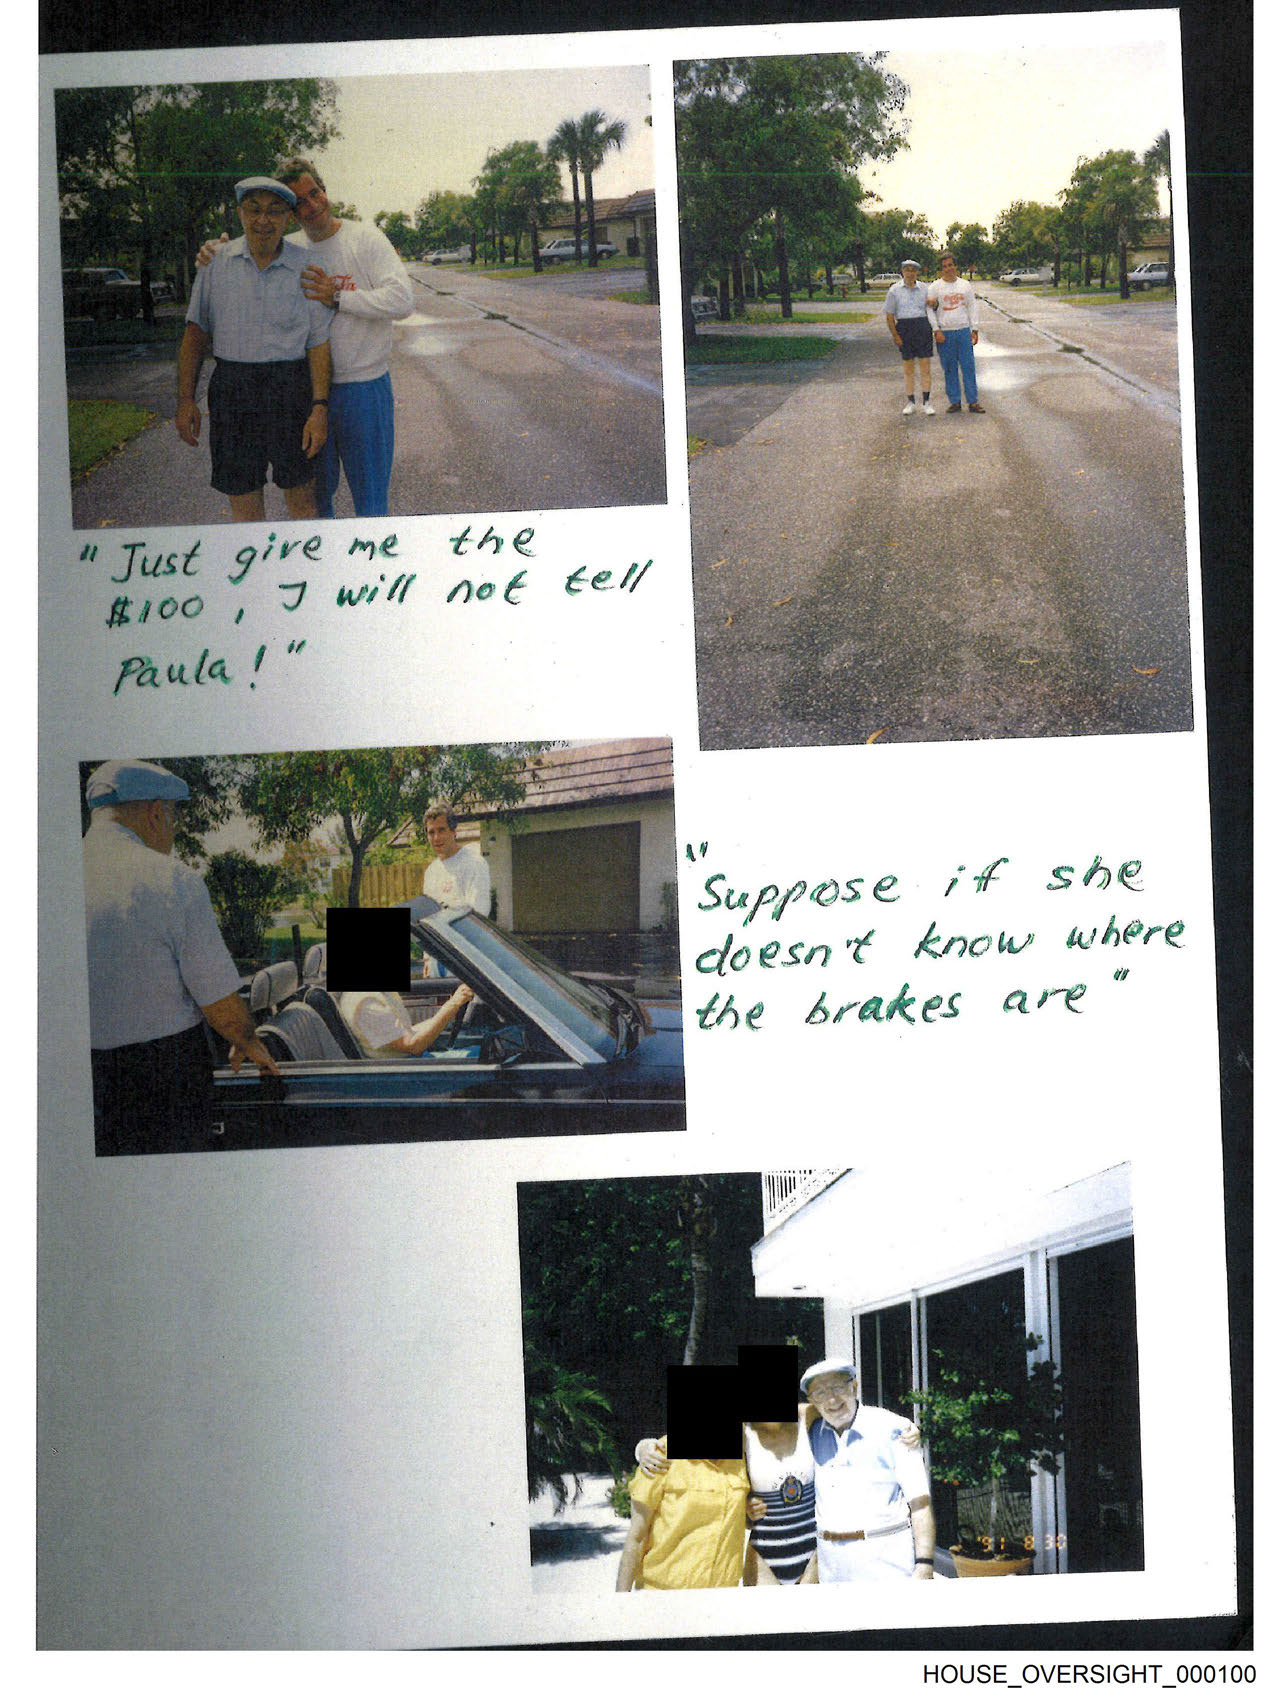 "Just give me the
$100, I will not tell
Paula!"
Coca-Cola
"Suppose if she
doesn't know where
the brakes are"
'91 8 30
HOUSE_OVERSIGHT_000100